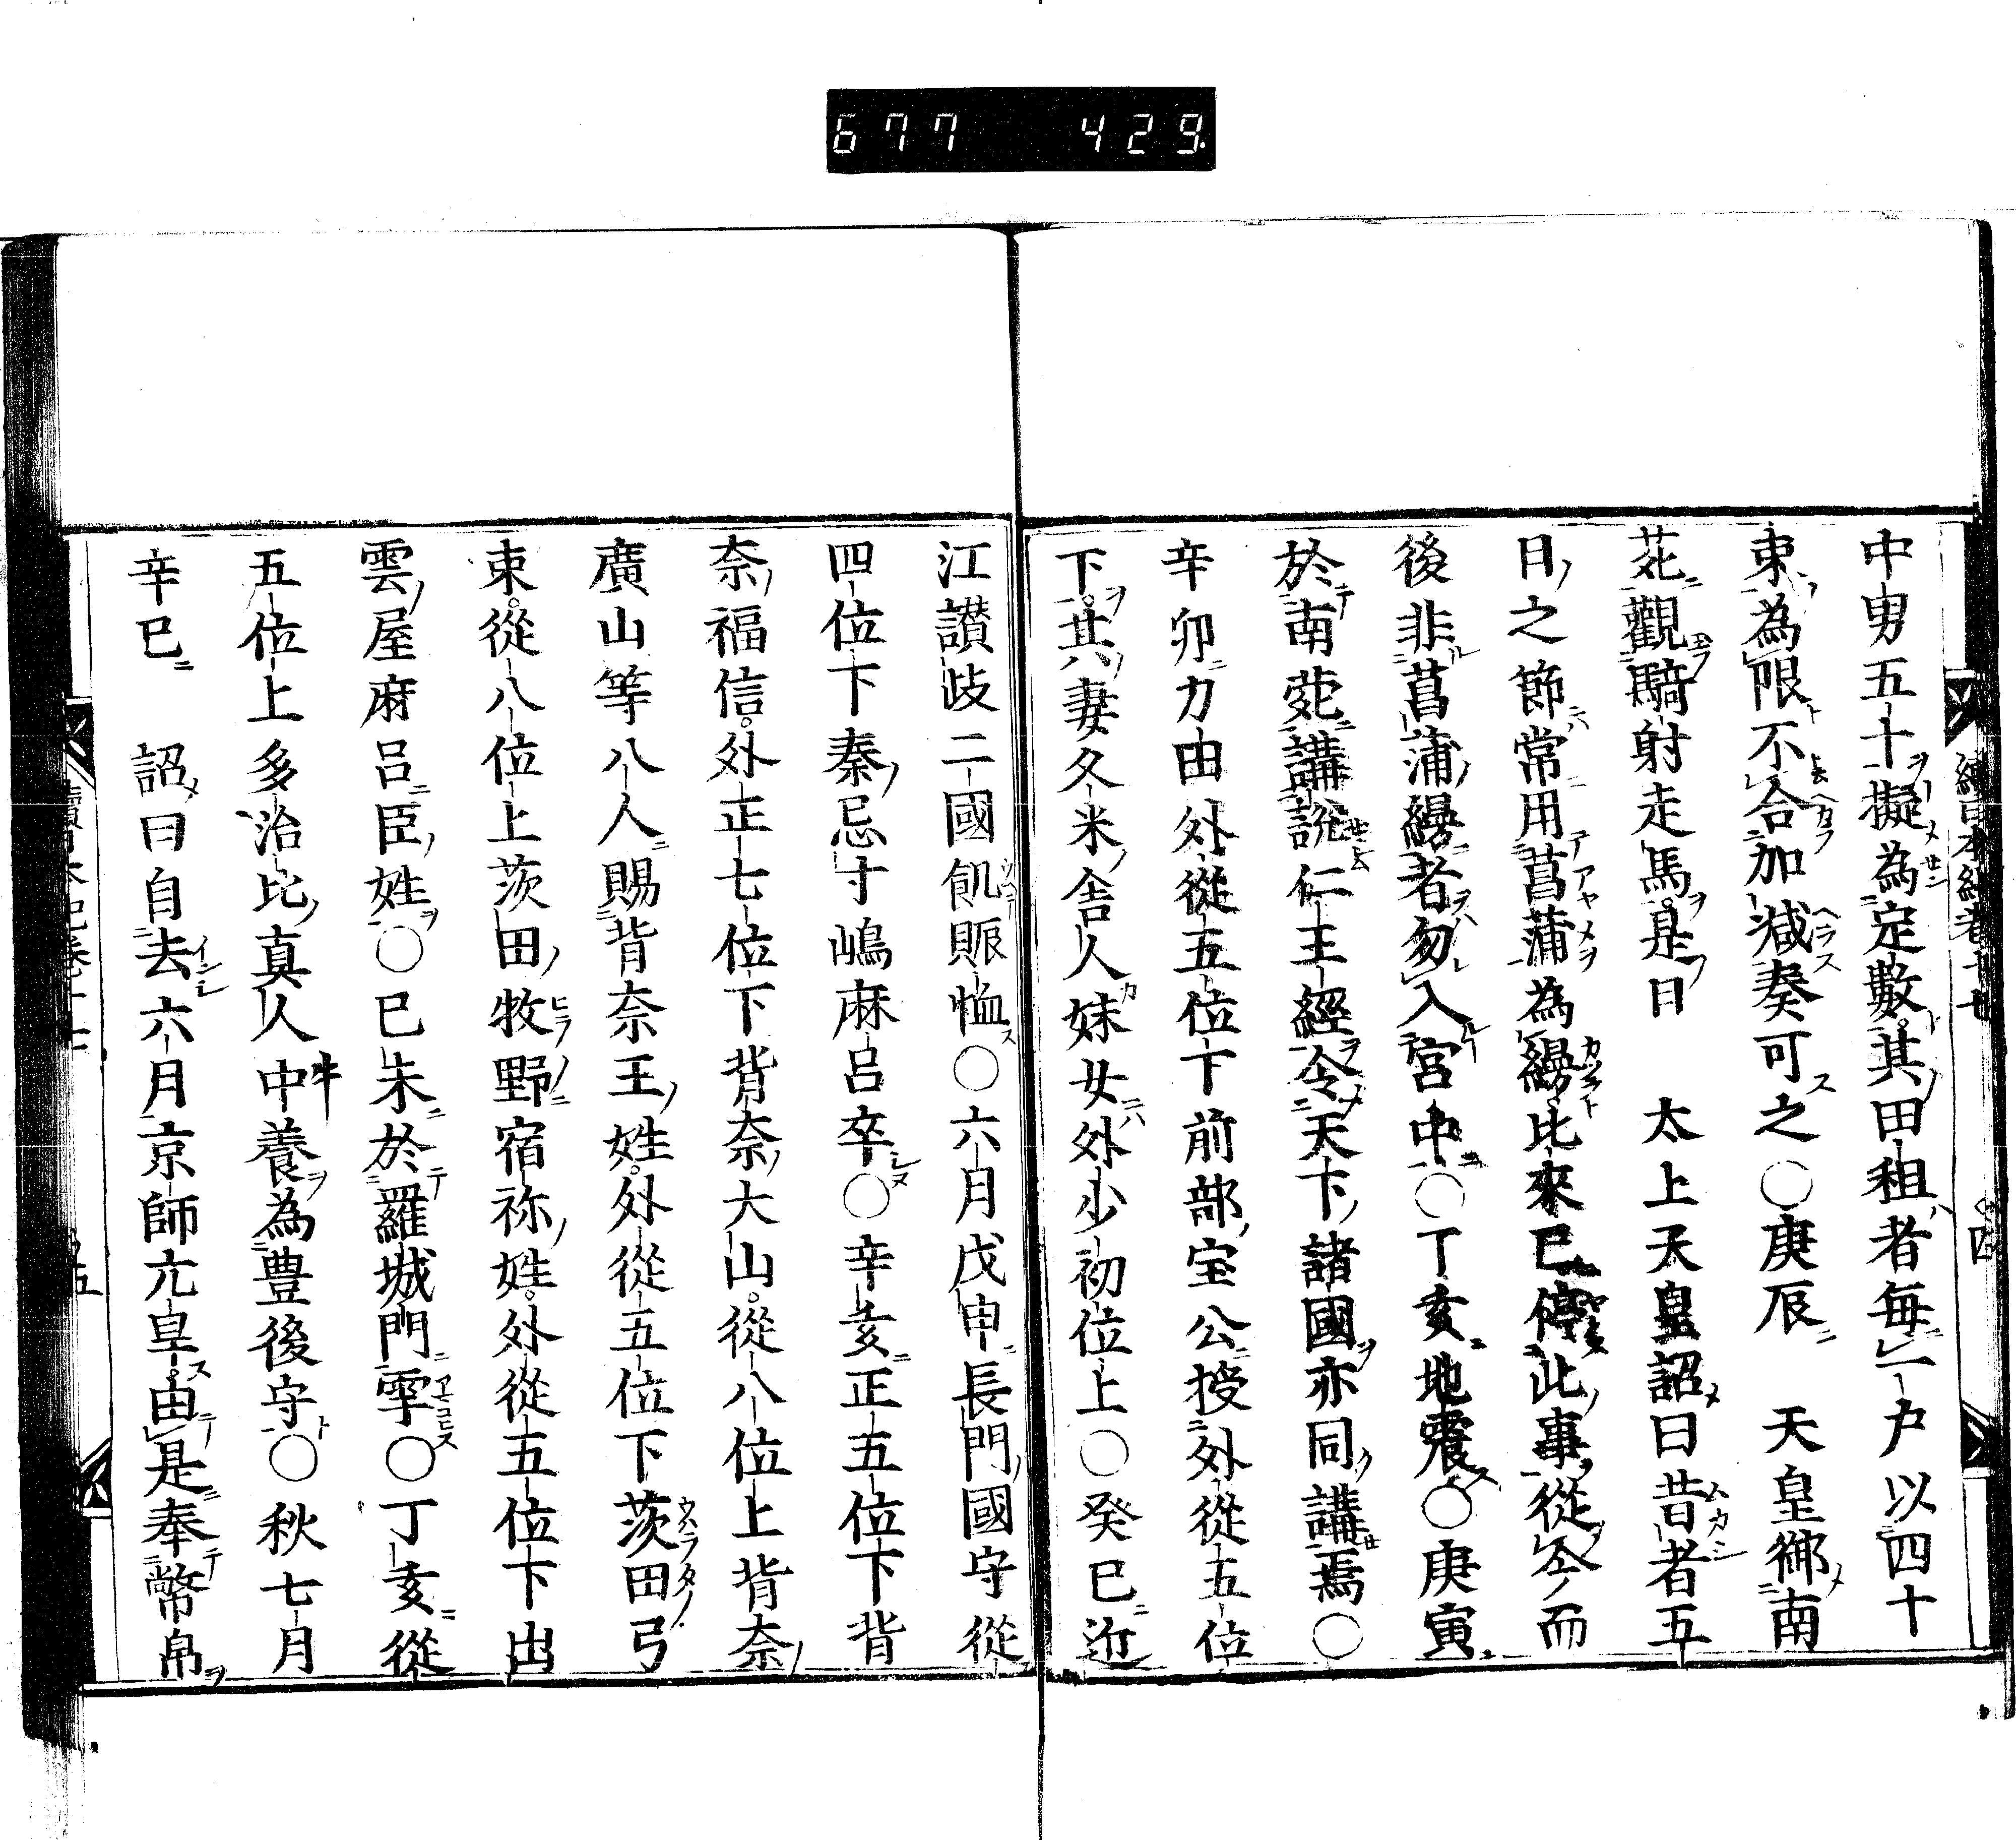 677 429
中男五十擬為定數其田租者每一戶以四十
束為限不合加減奏可之○庚辰 天皇御南
苑觀騎射走馬是日 太上天皇詔曰昔者五
日之節常用菖蒲為縵比來已停此事從今而
後非菖蒲縵者勿入宮中○丁亥地震○庚寅
於南苑講說仁王經令天下諸國亦同講焉○
辛卯力田外從五位下前部宝公授外從五位
下其妻久米舍人妹女外少初位上○癸巳近
江讃岐二國飢賑恤○六月戊申長門國守從
四位下秦忌寸嶋麻呂卒○辛亥正五位下背
奈福信外正七位下背奈大山從八位上背奈
廣山等八人賜背奈王姓外從五位下茨田弓
束從八位上茨田牧野宿祢姓外從五位下出
雲屋麻呂臣姓○已未於羅城門雩○丁亥從
五位上多治比真人中養為豊後守○秋七月
辛巳 詔曰自去六月京師亢旱由是奉幣帛